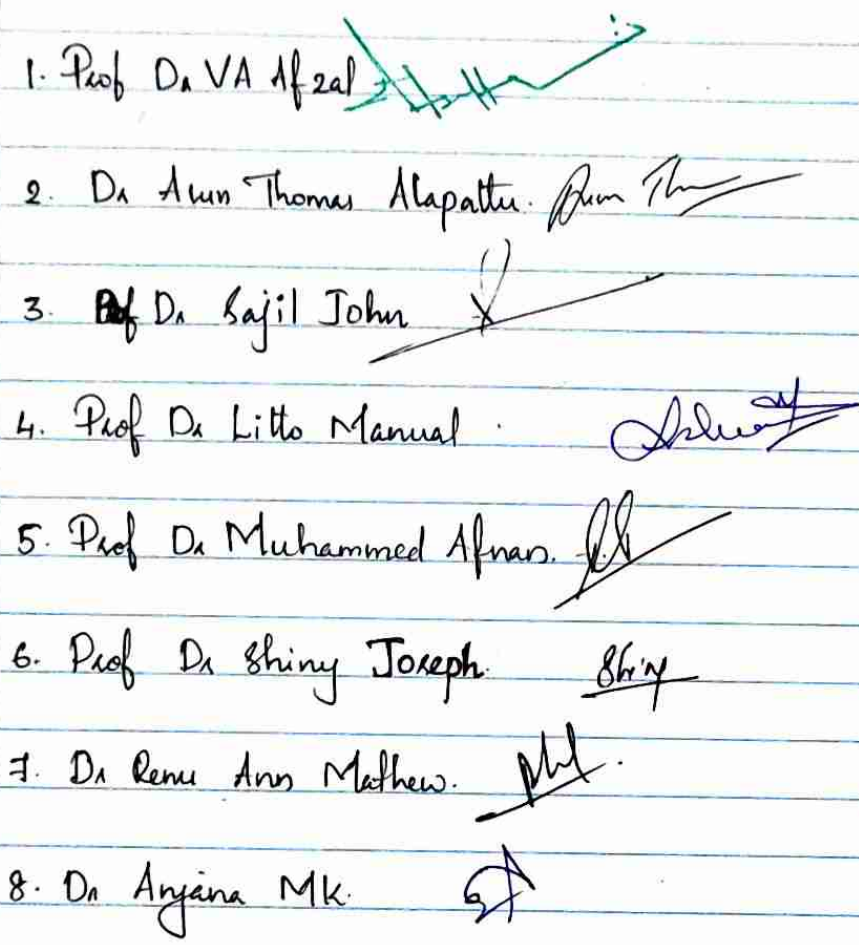 1. Prof Dr VA Afzal
2. Dr Arun Thomas Alapattu. Arun Th
3. Prof Dr Sajil John
4. Prof Dr Litto Manual
5. Prof Dr Muhammed Afnan.
6. Prof Dr Shiny Joseph. Shiny
7. Dr Renu Ann Mathew.
8. Dr Anjana MK.